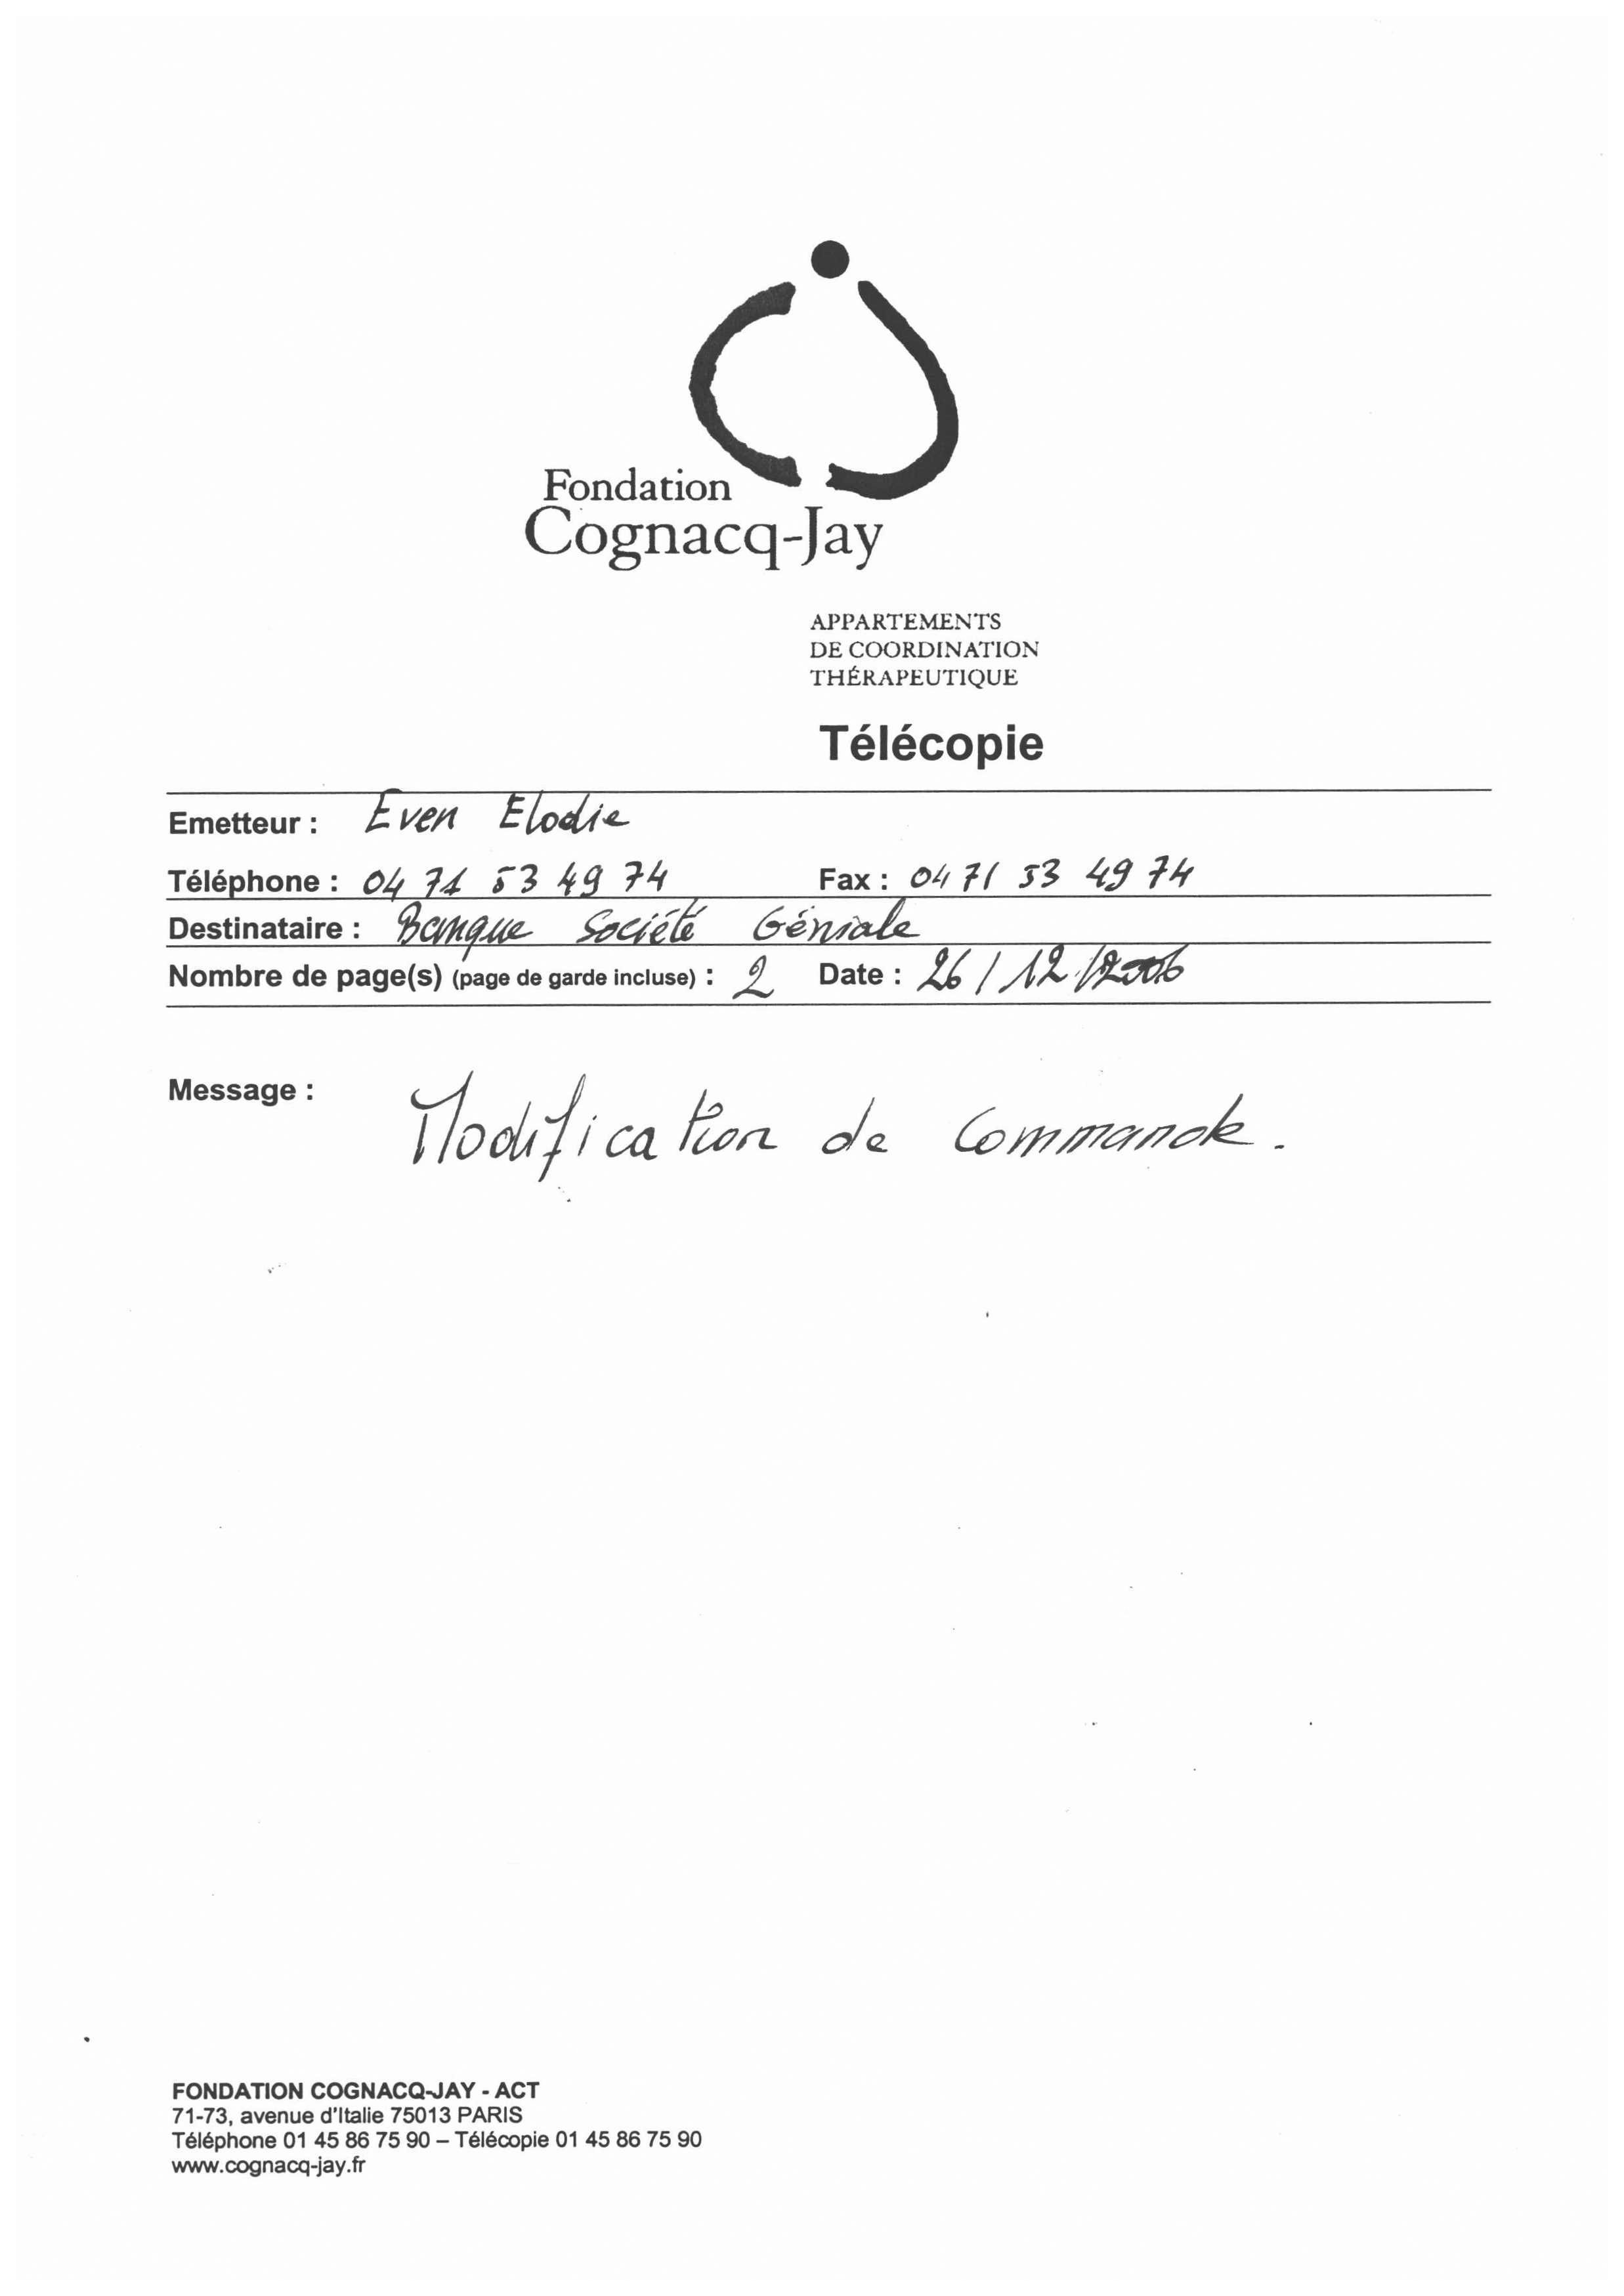 Fondation
Cognacq-Jay
APPARTEMENTS
DE COORDINATION
THÉRAPEUTIQUE
Télécopie
Emetteur : Even Elodie
Téléphone : 04 71 53 49 74 Fax : 04 71 53 49 74
Destinataire : Banque Société Géniale
Nombre de page(s) (page de garde incluse) : 2 Date : 26/12/2006
Message : Modification de Commande.
FONDATION COGNACQ-JAY - ACT
71-73, avenue d'Italie 75013 PARIS
Téléphone 01 45 86 75 90 – Télécopie 01 45 86 75 90
www.cognacq-jay.fr